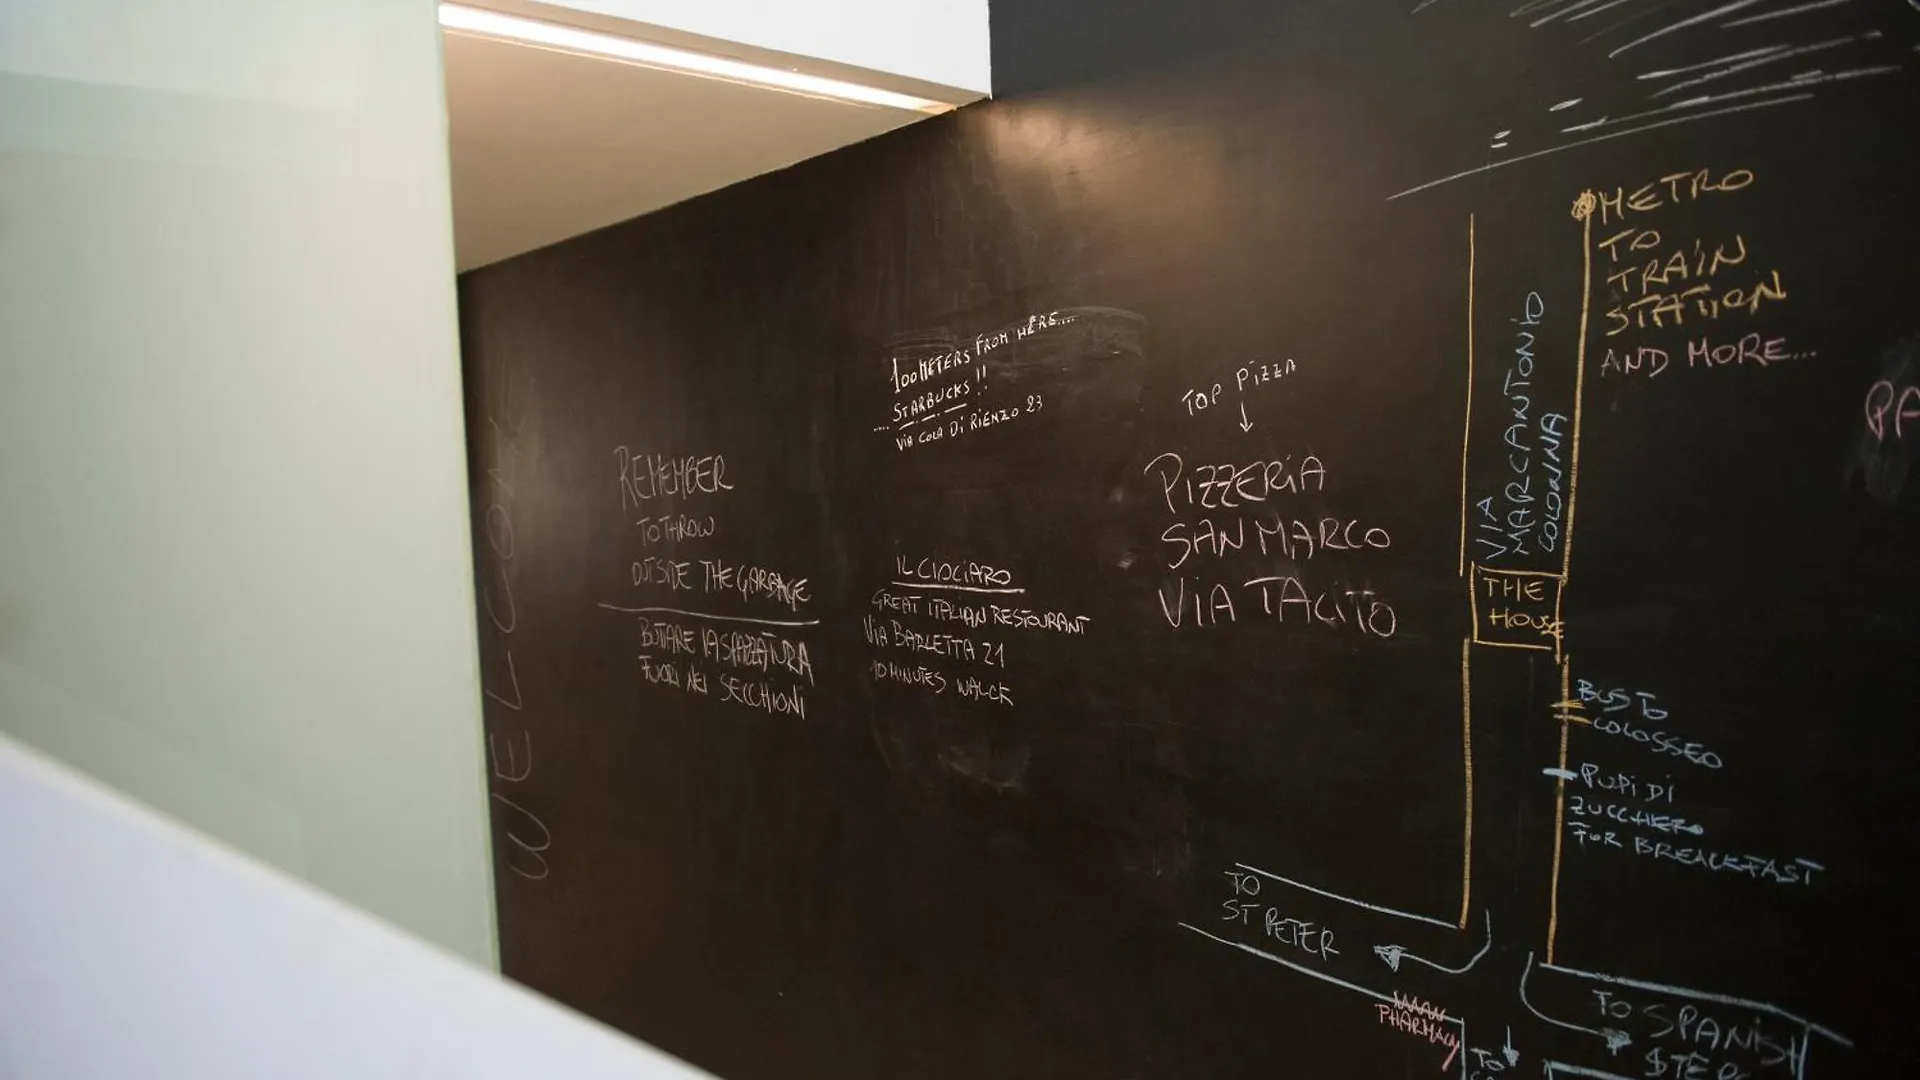 WELCOME
REMEMBER
TO THROW
OUTSIDE THE GARBAGE
BUTTARE LA SPAZZATURA
FUORI NEI SECCHIONI
100 METERS FROM HERE....
STARBUCKS !!
.... VIA COLA DI RIENZO 23
IL CIOCIARO
GREAT ITALIAN RESTOURANT
VIA BARLETTA 21
10 MINUTES WALCK
TOP PIZZA
PIZZERIA
SAN MARCO
VIA TACITO
METRO
TO
TRAIN
STATION
AND MORE...
VIA
MARCANTONIO
COLONNA
THE
HOUSE
BUS TO
COLOSSEO
PUPI DI
ZUCCHERO
FOR BREACKFAST
TO
ST PETER
PHARMACY
TO SPANISH
STEP
TO
PA